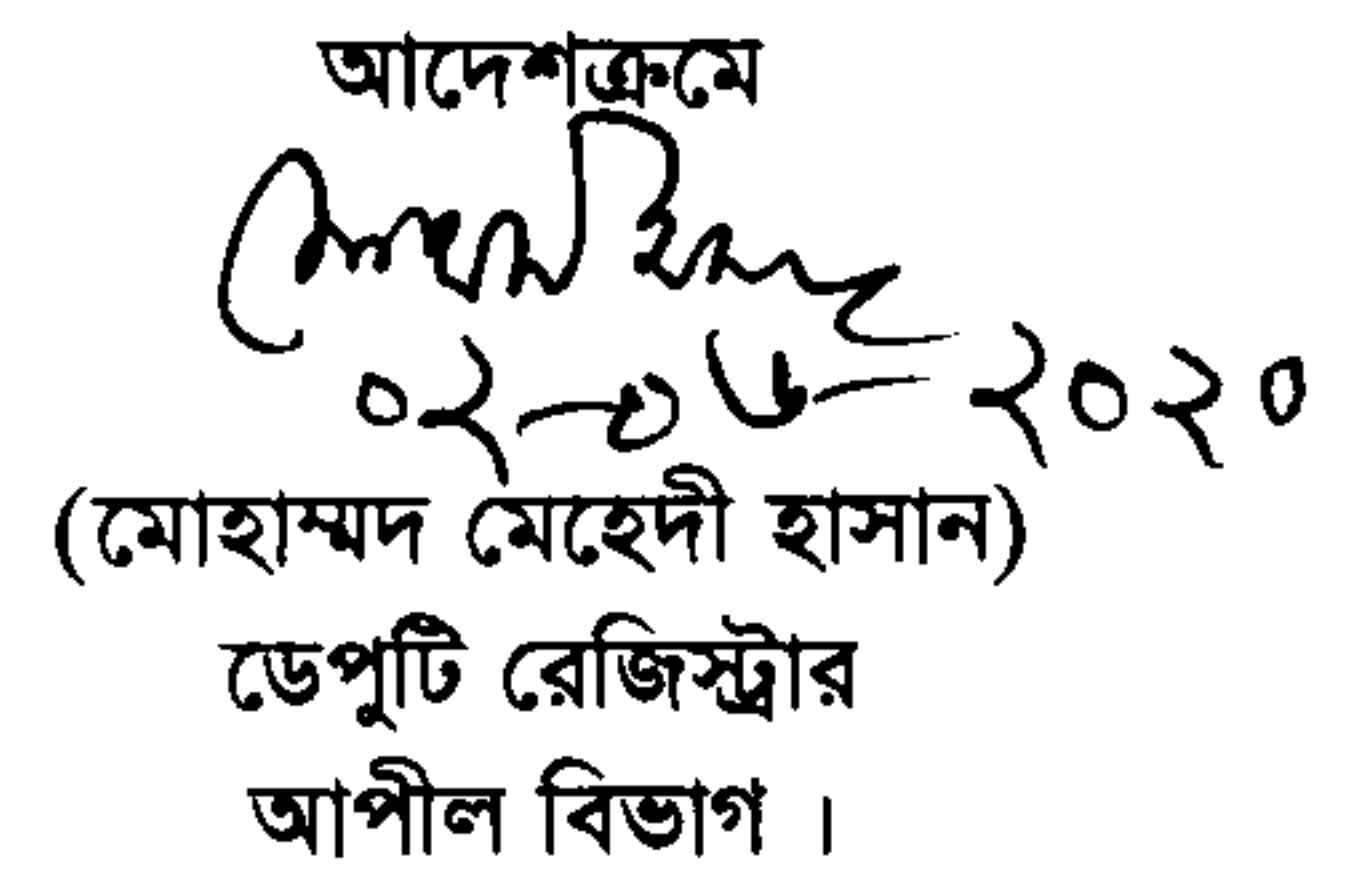 আদেশক্রমে
০২-০৬-২০২০
(মোহাম্মদ মেহেদী হাসান)
ডেপুটি রেজিস্ট্রার
আপীল বিভাগ ।